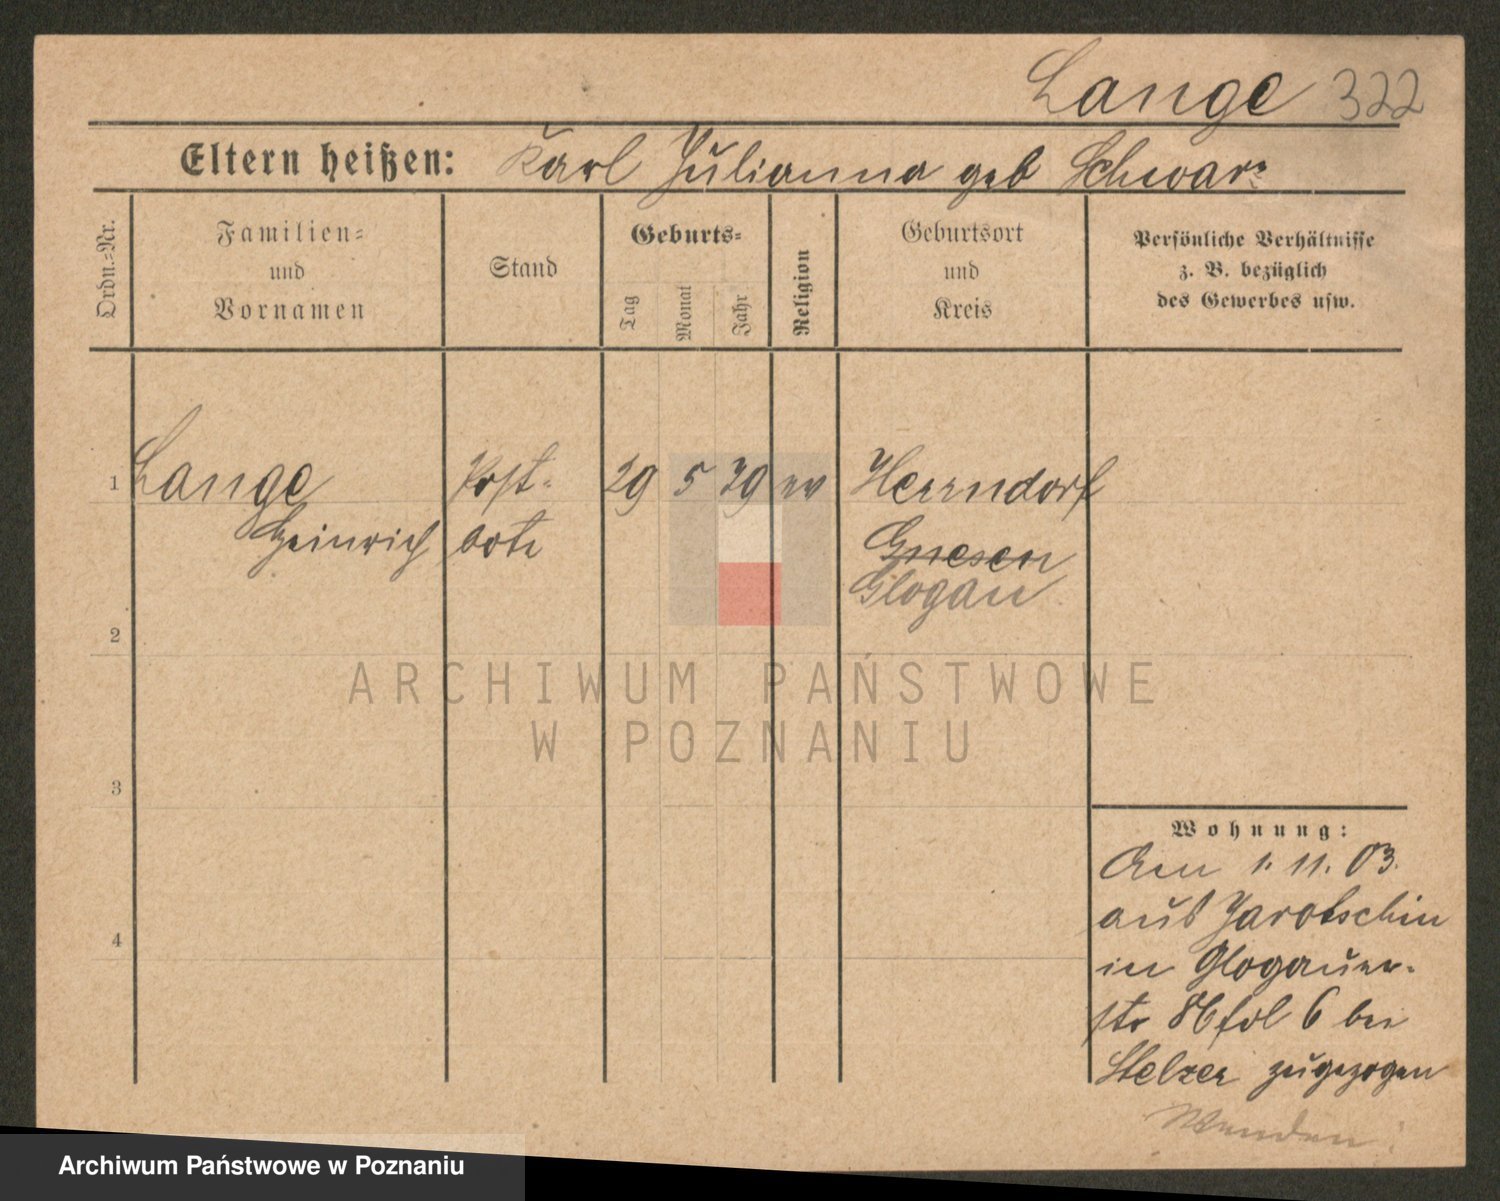 Lange 322
Eltern heißen: Karl Julianna geb Schwarz
Ordn.-Nr.
Familien-
und
Vornamen
Stand
Geburts-
Tag
Monat
Jahr
Religion
Geburtsort
und
Kreis
Persönliche Verhältnisse
z. B. bezüglich
des Gewerbes usw.
1 Lange Post- 29 5 79 ev Herrndorf
Heinrich bote Gnesen
Glogau
2
3
4
Wohnung:
Am 1. 11. 03.
aus Jarotschin
in Glogauer-
str 86 fol 6 bei
Stelzer zugezogen
Wenden!
ARCHIWUM PAŃSTWOWE
W POZNANIU
Archiwum Państwowe w Poznaniu